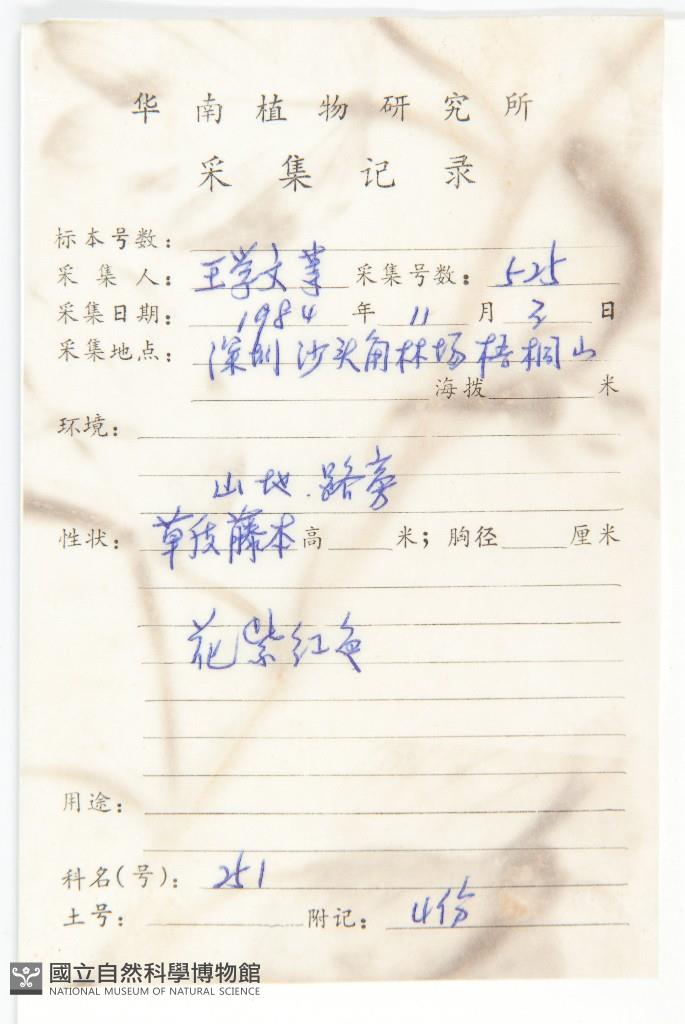 华南植物研究所
采集记录
标本号数:
采集人: 王学文等 采集号数: 525
采集日期: 1984 年 11 月 3 日
采集地点: 深圳沙头角林场梧桐山
海拨 米
环境:
山地.路旁
性状: 草质藤本 高 米; 胸径 厘米
花紫红色
用途:
科名(号): 251
土号: 附记: 4份
國立自然科學博物館
NATIONAL MUSEUM OF NATURAL SCIENCE